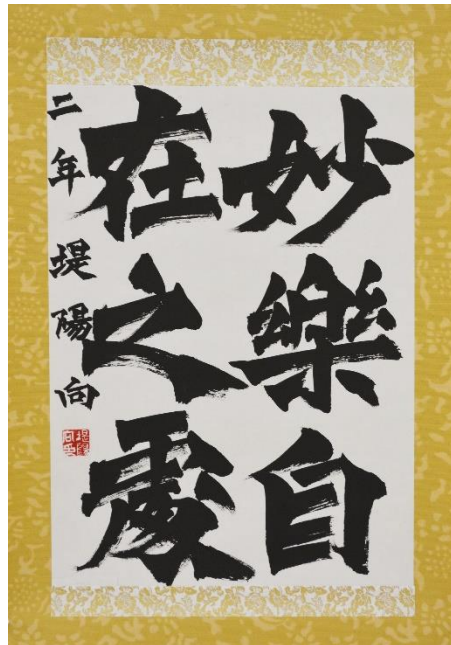 妙樂自
在之處
二年 堤陽向